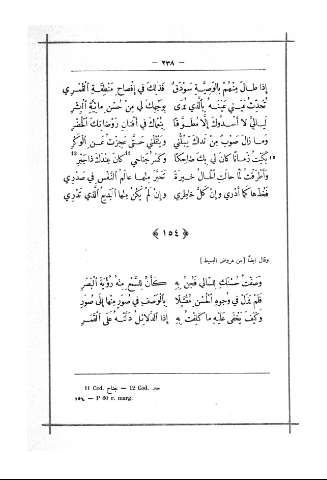 — ٢٣٨ —
إذا طال منهم بالوصية سودق فذلك في إفصاح منطقة القمري
تحدثت عيني عينه بالذي ترى بوجهك لي من حسن مائية البشر
ليالي لا أسدوك إلا مطرفا بنعماك في أفنان روضاتك الخضر
وما زال صوب من نداك يبلني ويثقلني حتى عجزت عن الوكر
١٥ بكيت زمانا كان لي بك ضاحكا وكسر جناحي كان عندك ذا جبر
وأطرقت لما حالت الحال خيرة تحير منها عالم النفس في صدري
فخذها كما أدري وإن كل خاطري وإن لم يكن منها البديع الذي تدري
﴿ ١٥٤ ﴾
وقال ايضا [من عروض البسيط]
وصفت حسنك للسالي فجن به كأن يسمع منه رؤية البصر
فلم يدل في وجوه الحسن مقتبلا بالوصف في صور منها إلى صور
وكيف يخفى عليه ما كلفت به إذا الدلائل دلته على القمر
11 Cod. جناح — 12 Cod. جبر
١٥٤ — P 60 r. marg.